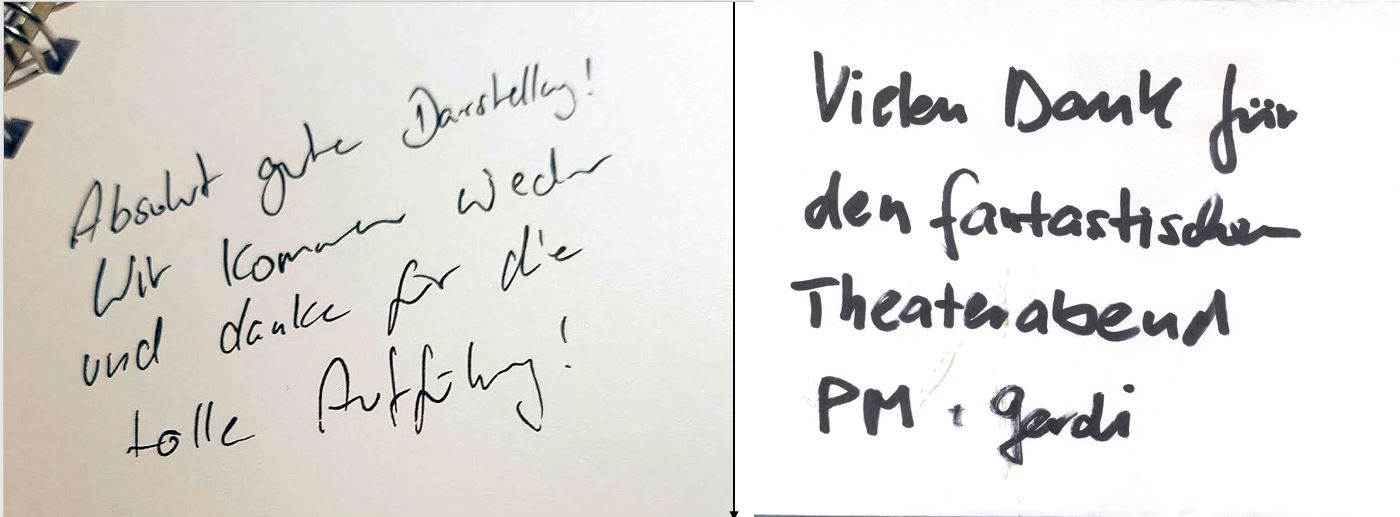 Absolut gute Darstellung!
Wir kommen wieder
und danke für die
tolle Aufführung!
Vielen Dank für
den fantastischen
Theaterabend
PM + Gerdi